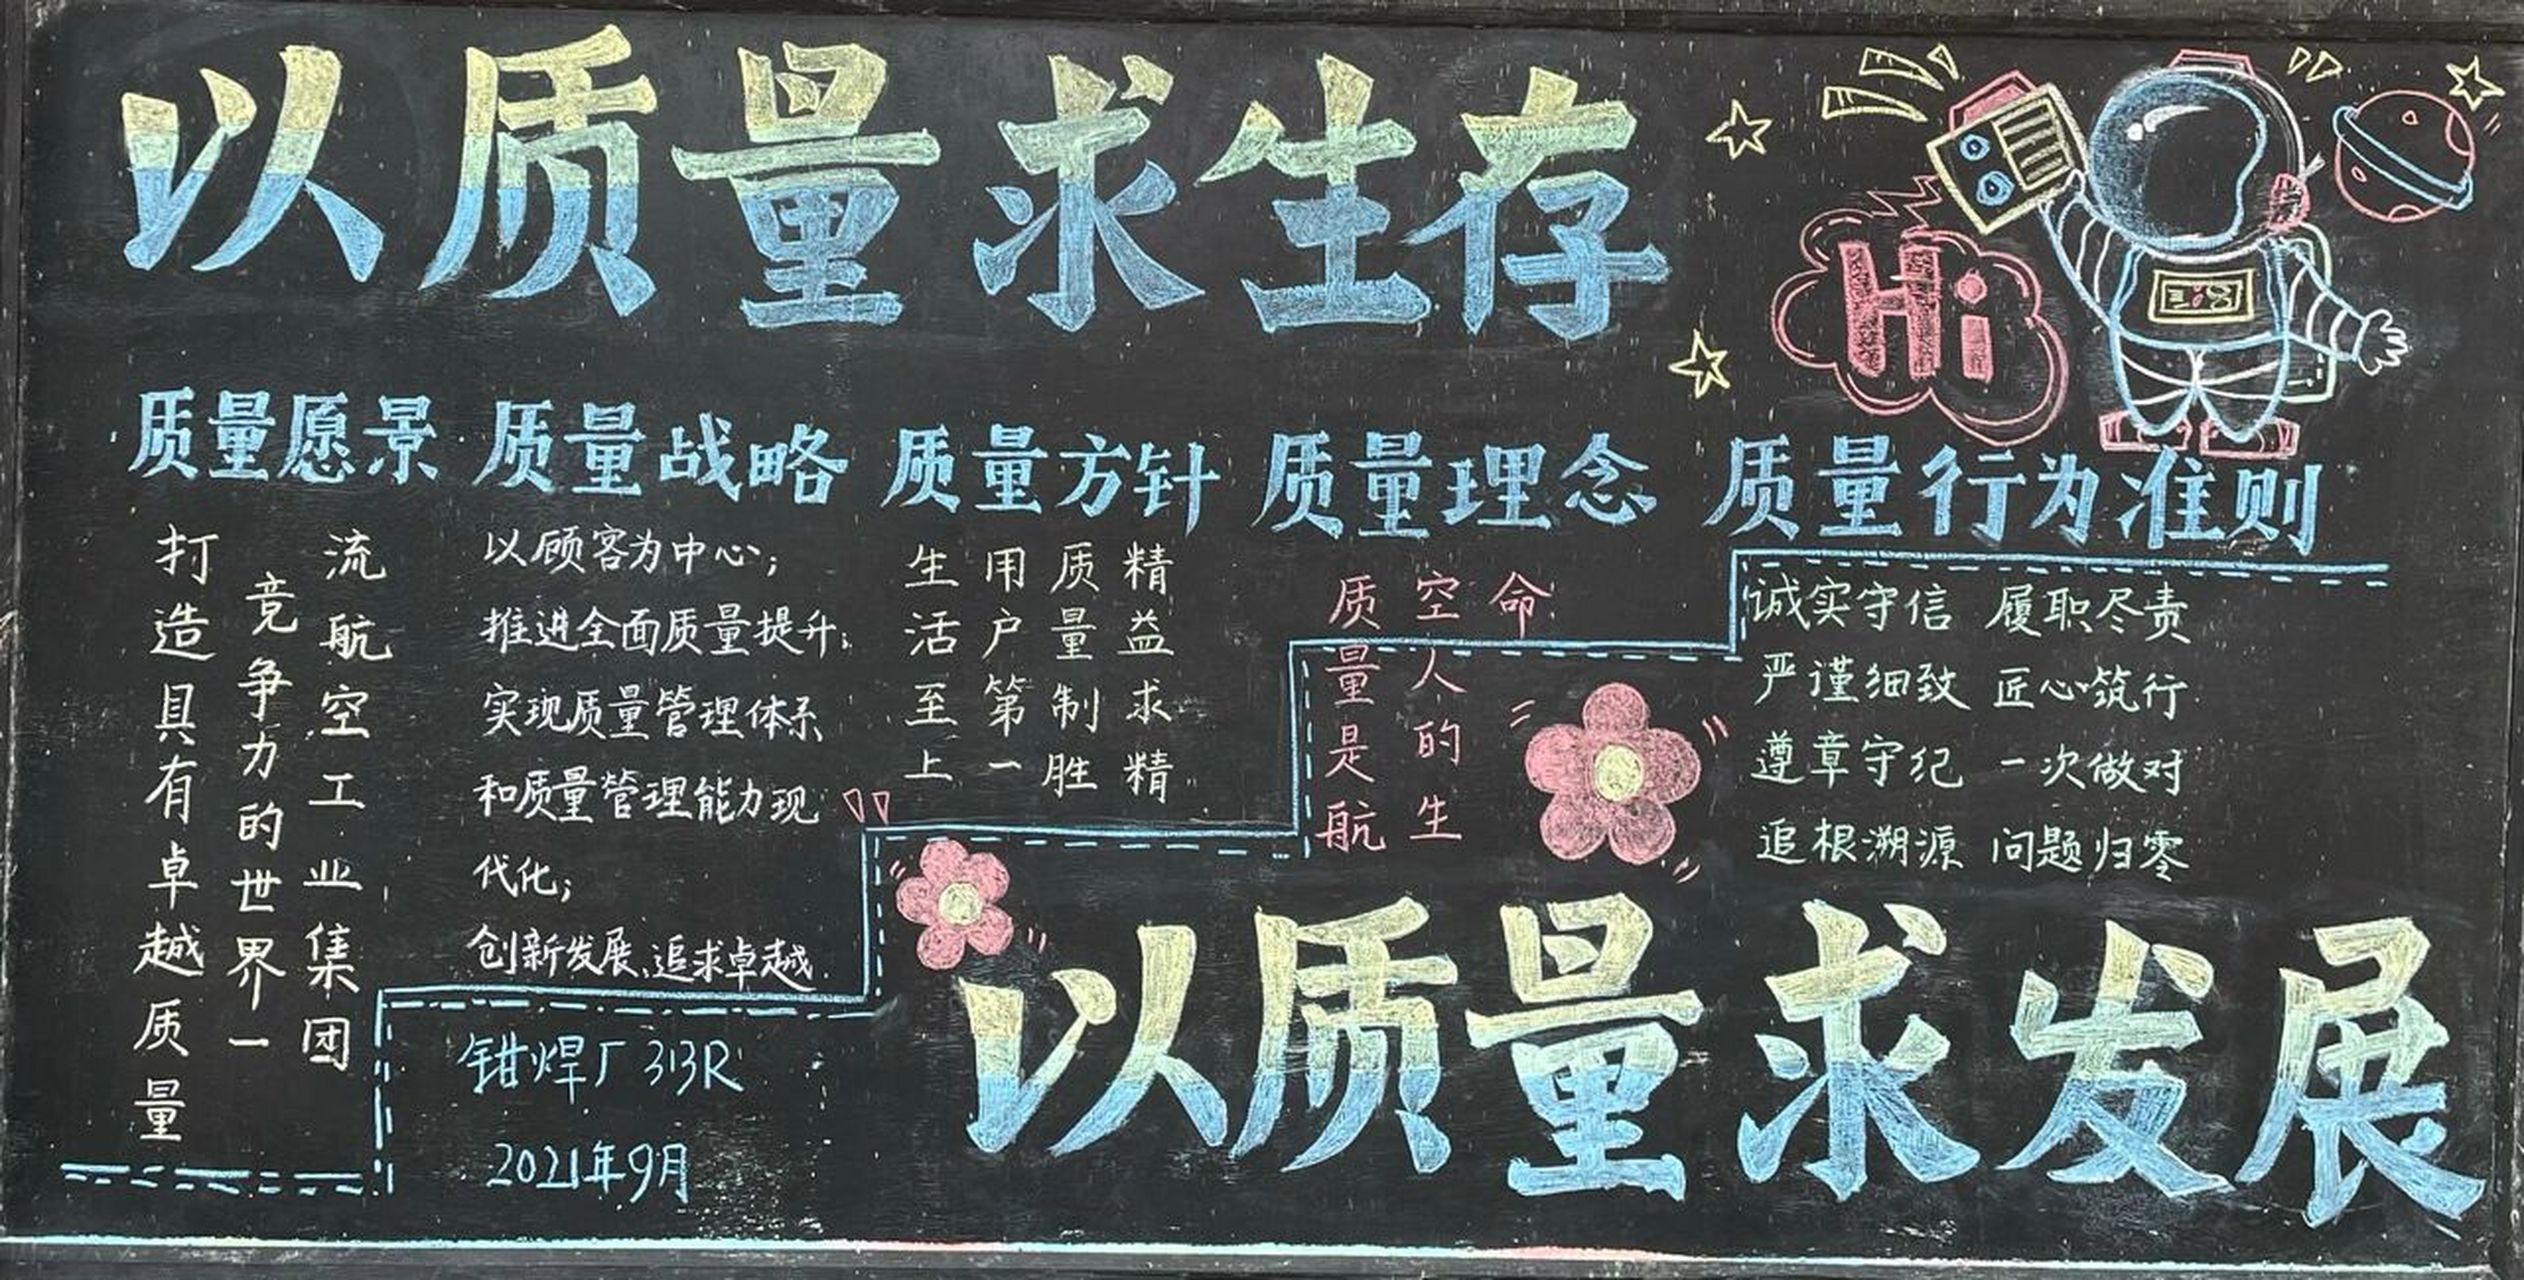 以质量求生存
Hi
质量愿景
打造具有卓越质量
竞争力的世界一
流航空工业集团
质量战略
以顾客为中心；
推进全面质量提升；
实现质量管理体系
和质量管理能力现
代化；
创新发展、追求卓越.
质量方针
生活至上
用户第一
质量制胜
精益求精
质量理念
质量是航
空人的生
命
质量行为准则
诚实守信 履职尽责
严谨细致 匠心筑行
遵章守纪 一次做对
追根溯源 问题归零
以质量求发展
钳焊厂313R
2021年9月